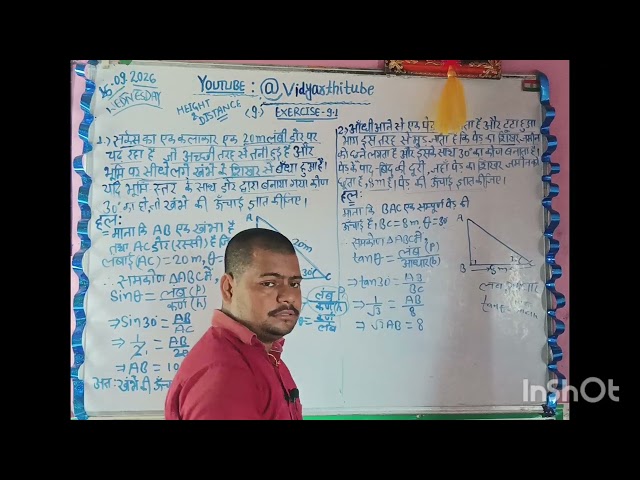 16.09.2026
WEDNESDAY
YOUTUBE : @Vidyarthitube
HEIGHT & DISTANCE (9.) EXERCISE-9.1
1.) सर्कस का एक कलाकार एक 20m लंबी डोर पर
चढ़ रहा है जो अच्छी तरह से तनी हुई है और
भूमि पर सीधे लगे खंभे के शिखर से बँधा हुआ है।
यदि भूमि स्तर के साथ डोर द्वारा बनाया गया कोण
30° का हो, तो खंभे की ऊँचाई ज्ञात कीजिए।
हल:
माना कि AB एक खंभा है
तथा AC डोर (रस्सी) है
लंबाई (AC) = 20m, θ =
∴ समकोण ΔABC में
Sinθ = लंब (P) / कर्ण (h)
⇒ Sin30° = AB/AC
⇒ 1/2 = AB/
⇒ AB = 10
अतः खंभे की ऊँचा
A
20m
30°
लंब P
कर्ण (h)
= कर्ण / लंब
2.) आँधी आने से एक पेड़ टूट जाता है और टूटा हुआ
भाग इस तरह से मुड़ जाता है कि पेड़ का शिखर जमीन
को छूने लगता है और इसके साथ 30° का कोण बनाता है।
पेड़ के पाद-बिंदु की दूरी, जहाँ पेड़ का शिखर जमीन को
छूता है, 8m है। पेड़ की ऊँचाई ज्ञात कीजिए।
हल:
माना कि BAC एक सम्पूर्ण पेड़ की
ऊँचाई है, BC = 8m, θ = 30°
∴ समकोण ΔABC में
tanθ = लंब (P) / आधार (b)
⇒ tan30° = AB/BC
⇒ 1/√3 = AB/8
⇒ √3AB = 8
A
B
8m
InShOt